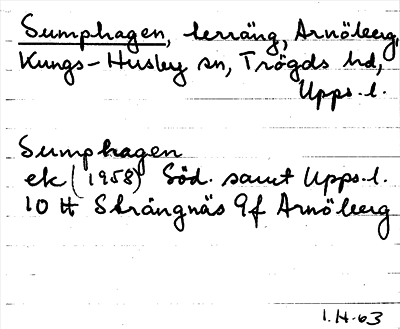 Sumphagen, terräng, Arnöberg,
Kungs-Husby sn, Trögds hd,
Upps. l.
Sumphagen
ek (1958) Söd. samt Upps. l.
10 H Strängnäs 9f Arnöberg
1.H.63